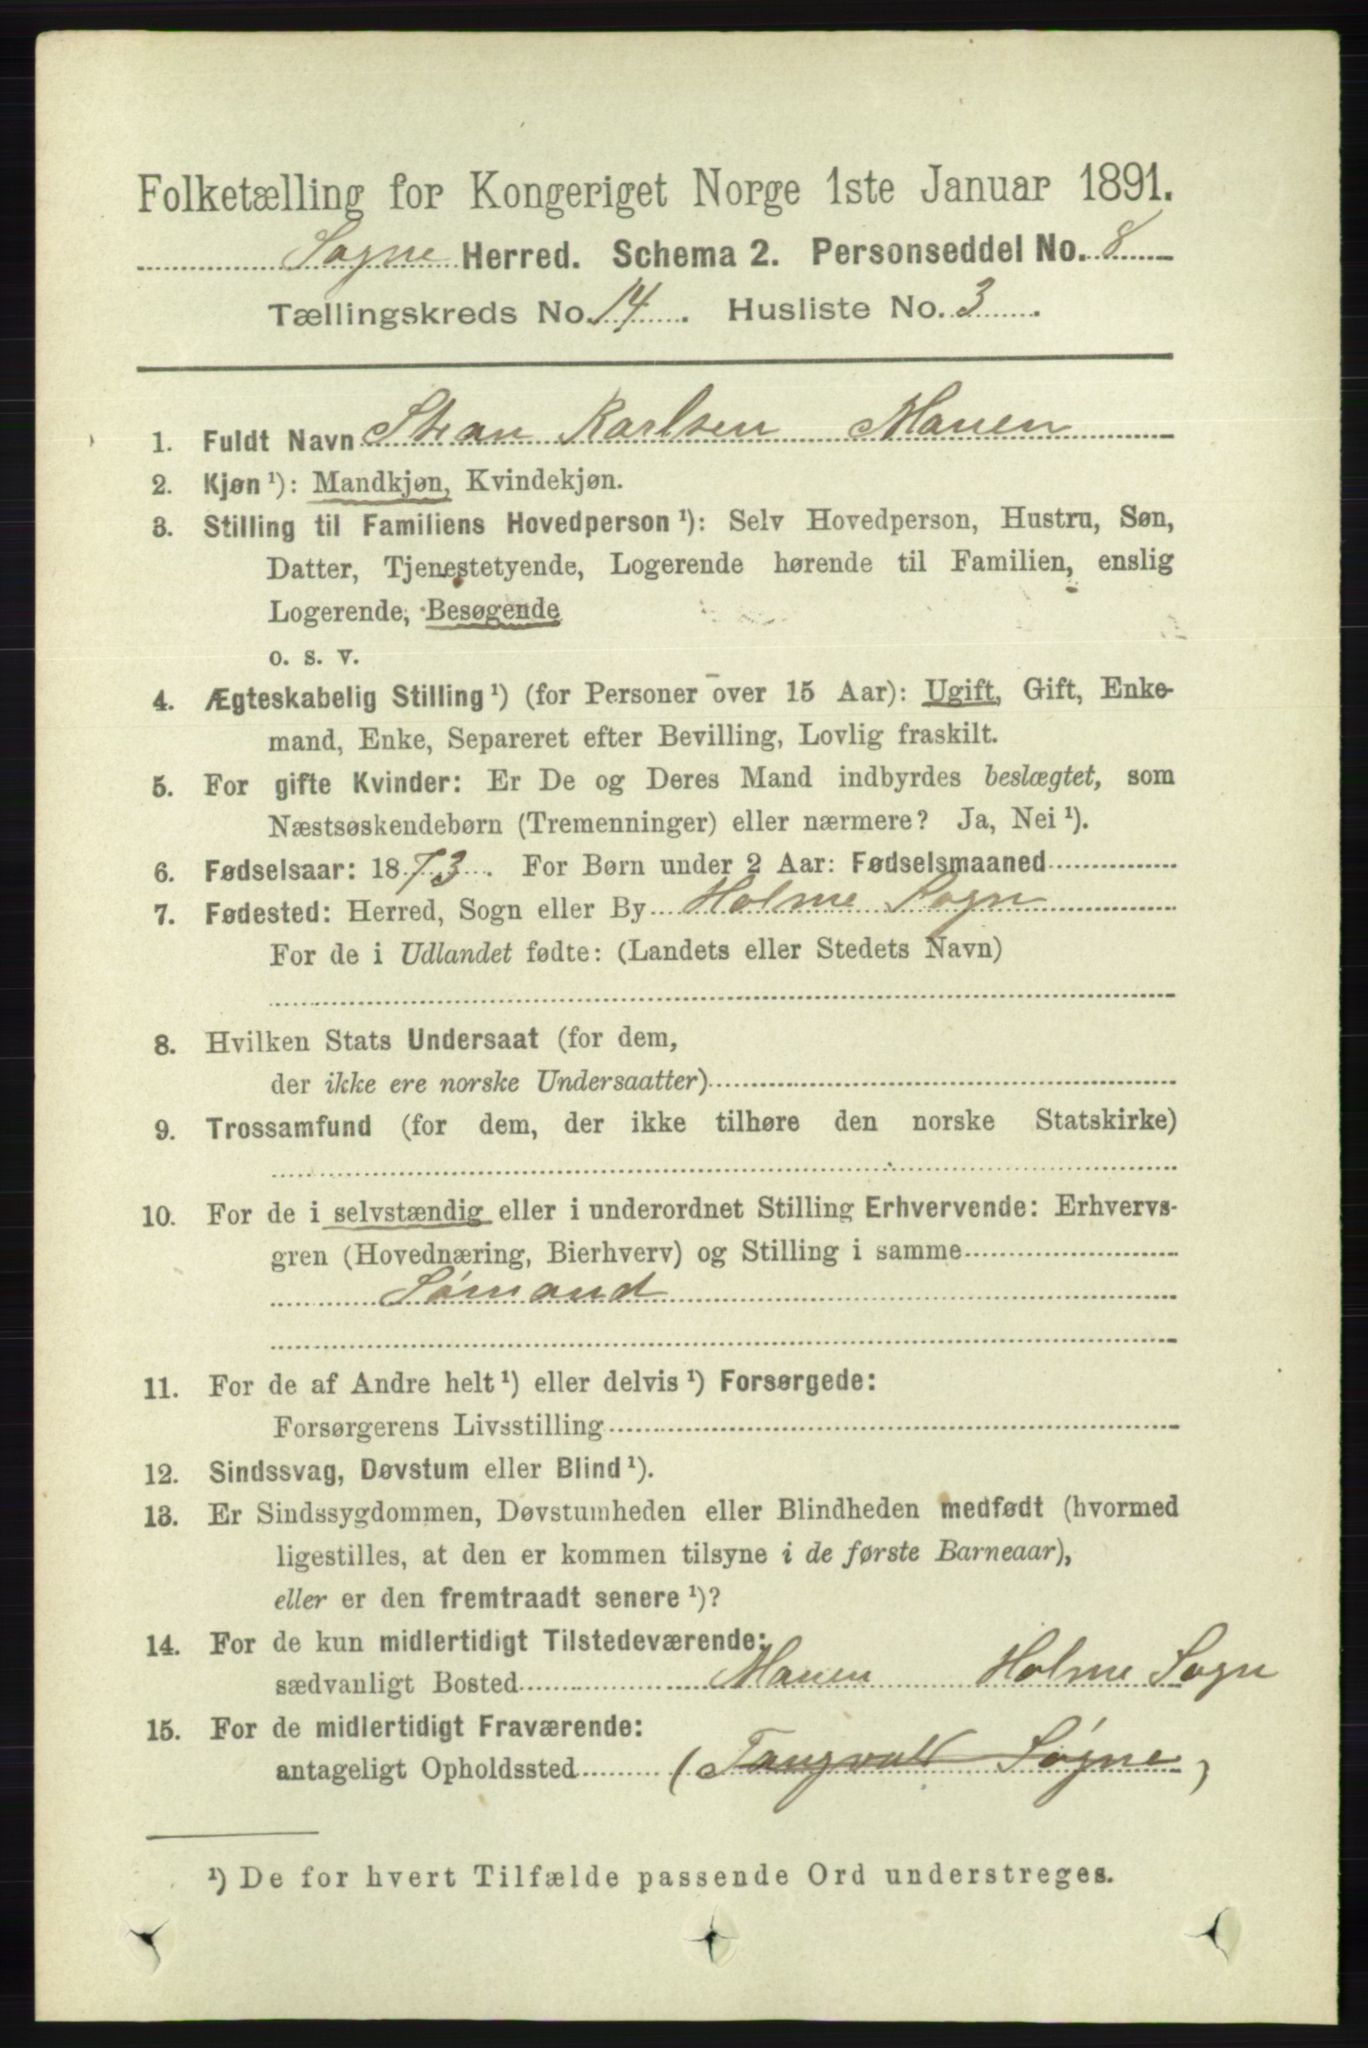 Folketælling for Kongeriget Norge 1ste Januar 1891.
Søgne Herred. Schema 2. Personseddel No. 8
Tællingskreds No. 14. Husliste No. 3.
1. Fuldt Navn Karlsen Manen
2. Kjøn ¹): Mandkjøn, Kvindekjøn.
3. Stilling til Familiens Hovedperson ¹): Selv Hovedperson, Hustru, Søn,
Datter, Tjenestetyende, Logerende hørende til Familien, enslig
Logerende, Besøgende
o. s. v.
4. Ægteskabelig Stilling ¹) (for Personer over 15 Aar): Ugift, Gift, Enke-
mand, Enke, Separeret efter Bevilling, Lovlig fraskilt.
5. For gifte Kvinder: Er De og Deres Mand indbyrdes beslægtet, som
Næstsøskendebørn (Tremenninger) eller nærmere? Ja, Nei ¹).
6. Fødselsaar: 1873. For Børn under 2 Aar: Fødselsmaaned
7. Fødested: Herred, Sogn eller By Holme Sogn
For de i Udlandet fødte: (Landets eller Stedets Navn)
8. Hvilken Stats Undersaat (for dem,
der ikke ere norske Undersaatter)
9. Trossamfund (for dem, der ikke tilhøre den norske Statskirke)
10. For de i selvstændig eller i underordnet Stilling Erhvervende: Erhvervs-
gren (Hovednæring, Bierhverv) og Stilling i samme
Sømand
11. For de af Andre helt ¹) eller delvis ¹) Forsørgede:
Forsørgerens Livsstilling
12. Sindssvag, Døvstum eller Blind ¹).
13. Er Sindssygdommen, Døvstumheden eller Blindheden medfødt (hvormed
ligestilles, at den er kommen tilsyne i de første Barneaar),
eller er den fremtraadt senere ¹)?
14. For de kun midlertidigt Tilstedeværende:
sædvanligt Bosted Manen Holme Sogn
15. For de midlertidigt Fraværende:
antageligt Opholdssted (Tangvall Søgne)
¹) De for hvert Tilfælde passende Ord understreges.